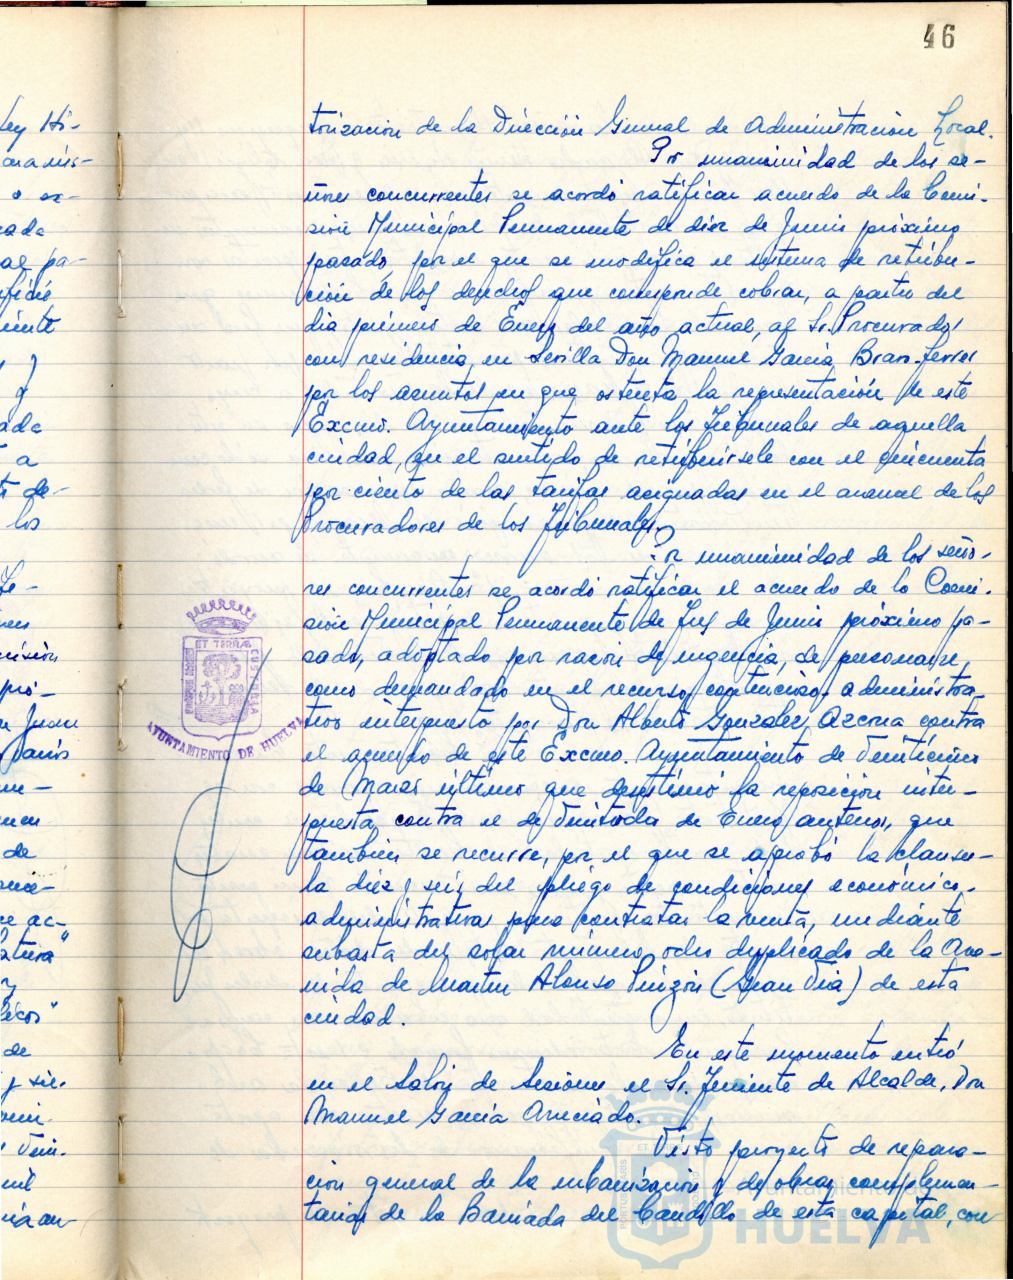 46
torización de la Dirección General de Administración Local.
Por unanimidad de los se-
ñores concurrentes se acordó ratificar acuerdo de la Comi-
sión Municipal Permanente de diez de Junio próximo
pasado, por el que se modifica el sistema de retribu-
ción de los derechos que corresponde cobrar, a partir del
dia primero de Enero del año actual, al Sr. Procurador
con residencia en Sevilla Don Manuel García Bravo-Ferrer
por los asuntos en que ostenta la representación de este
Excmo. Ayuntamiento ante los Tribunales de aquella
ciudad, en el sentido de retribuirsele con el cincuenta
por ciento de las tarifas asignadas en el arancel de los
Procuradores de los Tribunales.
Por unanimidad de los seño-
res concurrentes se acordó ratificar el acuerdo de la Comi-
sión Municipal Permanente de tres de Junio próximo pa-
sado, adoptado por razón de urgencia, de personarse
como demandado en el recurso contencioso-administra-
tivo interpuesto por Don Alberto Gonzalez Azcona contra
el acuerdo de este Excmo. Ayuntamiento de
de Marzo último que desestimó la reposición inter-
puesta contra el de de Enero anterior, que
también se recurre, por el que se aprobó la clausu-
la diez y seis del pliego de condiciones económico-
administrativas para contratar la venta, mediante
subasta del solar número ocho duplicado de la Ave-
nida de Martin Alonso Pinzón (Gran Via) de esta
ciudad.
En este momento entró
en el Salón de Sesiones el Sr. Teniente de Alcalde, Don
Manuel García
Visto proyecto de repara-
ción general de la urbanización y de obras complemen-
tarias de la Barriada del Candillo de esta capital, con
AYUNTAMIENTO DE HUELVA
Ayuntamiento de
HUELVA